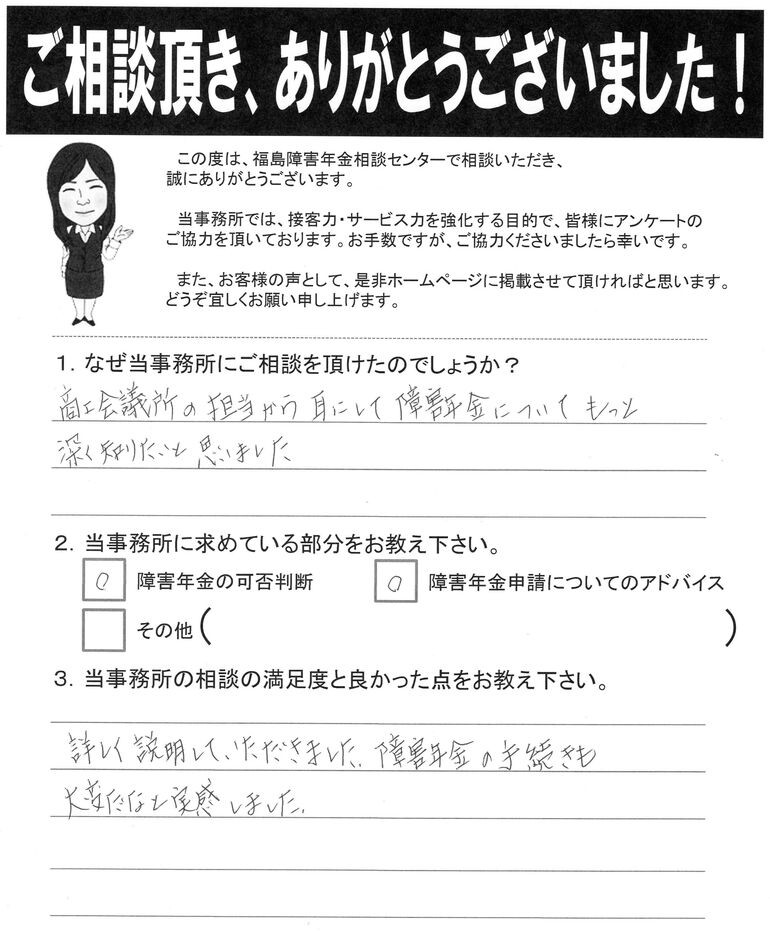 ご相談頂き、ありがとうございました！
この度は、福島障害年金相談センターで相談いただき、
誠にありがとうございます。
当事務所では、接客力・サービス力を強化する目的で、皆様にアンケートの
ご協力を頂いております。お手数ですが、ご協力くださいましたら幸いです。
また、お客様の声として、是非ホームページに掲載させて頂ければと思います。
どうぞ宜しくお願い申し上げます。
1．なぜ当事務所にご相談を頂けたのでしょうか？
商工会議所の担当から耳にして障害年金についてもっと
深く知りたいと思いました
2．当事務所に求めている部分をお教え下さい。
○ 障害年金の可否判断 ○ 障害年金申請についてのアドバイス
その他（ ）
3．当事務所の相談の満足度と良かった点をお教え下さい。
詳しく説明して、いただきました。障害年金の手続きも
大変だなと実感しました。